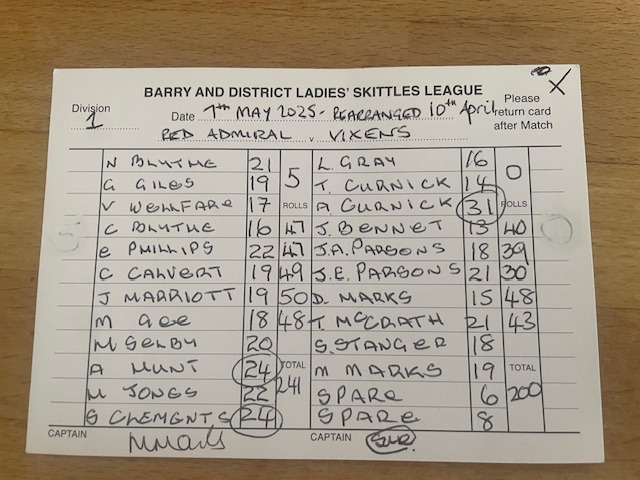 BARRY AND DISTRICT LADIES' SKITTLES LEAGUE
Division 1 Date 7th MAY 2025 - REARRANGED 10th April Please return card after Match
RED ADMIRAL v VIXENS
N BLYTHE 21 5 L. GRAY 16 0
G GILES 19 T. CURNICK 14
V WELLFARE 17 ROLLS A. CURNICK 31 ROLLS
C BLYTHE 16 47 J. BENNET 13 40
E PHILLIPS 22 47 J.A. PARSONS 18 39
C CALVERT 19 49 J.E. PARSONS 21 30
J MARRIOTT 19 50 D. MARKS 15 48
M GEE 18 48 T. McCRATH 21 43
M SELBY 20 S. STANGER 18
A HUNT 24 TOTAL 241 M MARKS 19 TOTAL 200
M JONES 22 SPARE 6
S CLEMENTS 24 SPARE 8
CAPTAIN MMarks CAPTAIN